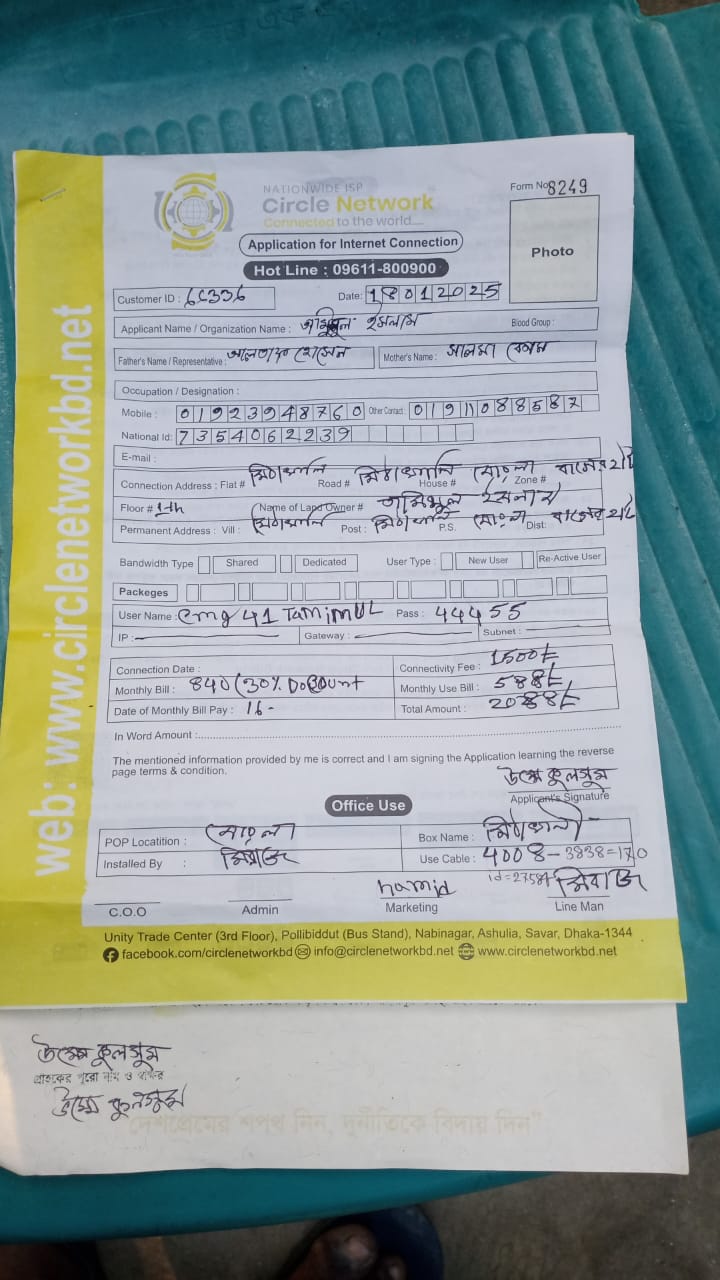 NATIONWIDE ISP
Circle Network
Connected to the world....
Form No 8249
Application for Internet Connection
Hot Line : 09611-800900
Photo
Customer ID : 66336
Date: 18012025
Applicant Name / Organization Name : ইসলাম Blood Group :
Father's Name / Representative : হোসেন Mother's Name :
Occupation / Designation :
Mobile : 01923948760 Other Contact : 01911088587
National Id: 7354062239
E-mail :
Connection Address : Flat # মিঠাখালি Road # মিঠাখালি House # মোংলা Zone # বাগেরহাট
Floor # 1th Name of Land Owner #
Permanent Address : Vill : মিঠাখালি Post : মিঠাখালি P.S. মোংলা Dist: বাগেরহাট
Bandwidth Type Shared Dedicated User Type : New User Re-Active User
Packeges
User Name : cmg41TamimUL Pass : 44455
IP : Gateway : Subnet :
Connection Date : Connectivity Fee : 1500/=
Monthly Bill : 840 (30% Monthly Use Bill : 588/=
Date of Monthly Bill Pay : 16- Total Amount : 2088/=
In Word Amount :
The mentioned information provided by me is correct and I am signing the Application learning the reverse
page terms & condition.
উম্মে কুলসুম
Applicant's Signature
Office Use
POP Locatition : মোংলা Box Name : মিঠাখালী
Installed By : মিরাজ Use Cable : 4008-3838=170
id=27584
hamid মিরাজ
C.O.O Admin Marketing Line Man
Unity Trade Center (3rd Floor), Pollibiddut (Bus Stand), Nabinagar, Ashulia, Savar, Dhaka-1344
facebook.com/circlenetworkbd info@circlenetworkbd.net www.circlenetworkbd.net
web: www.circlenetworkbd.net
উম্মে কুলসুম
গ্রাহকের পুরো নাম ও স্বাক্ষর
উম্মে কুলসুম
"দেশপ্রেমের শপথ নিন, দুর্নীতিকে বিদায় দিন"